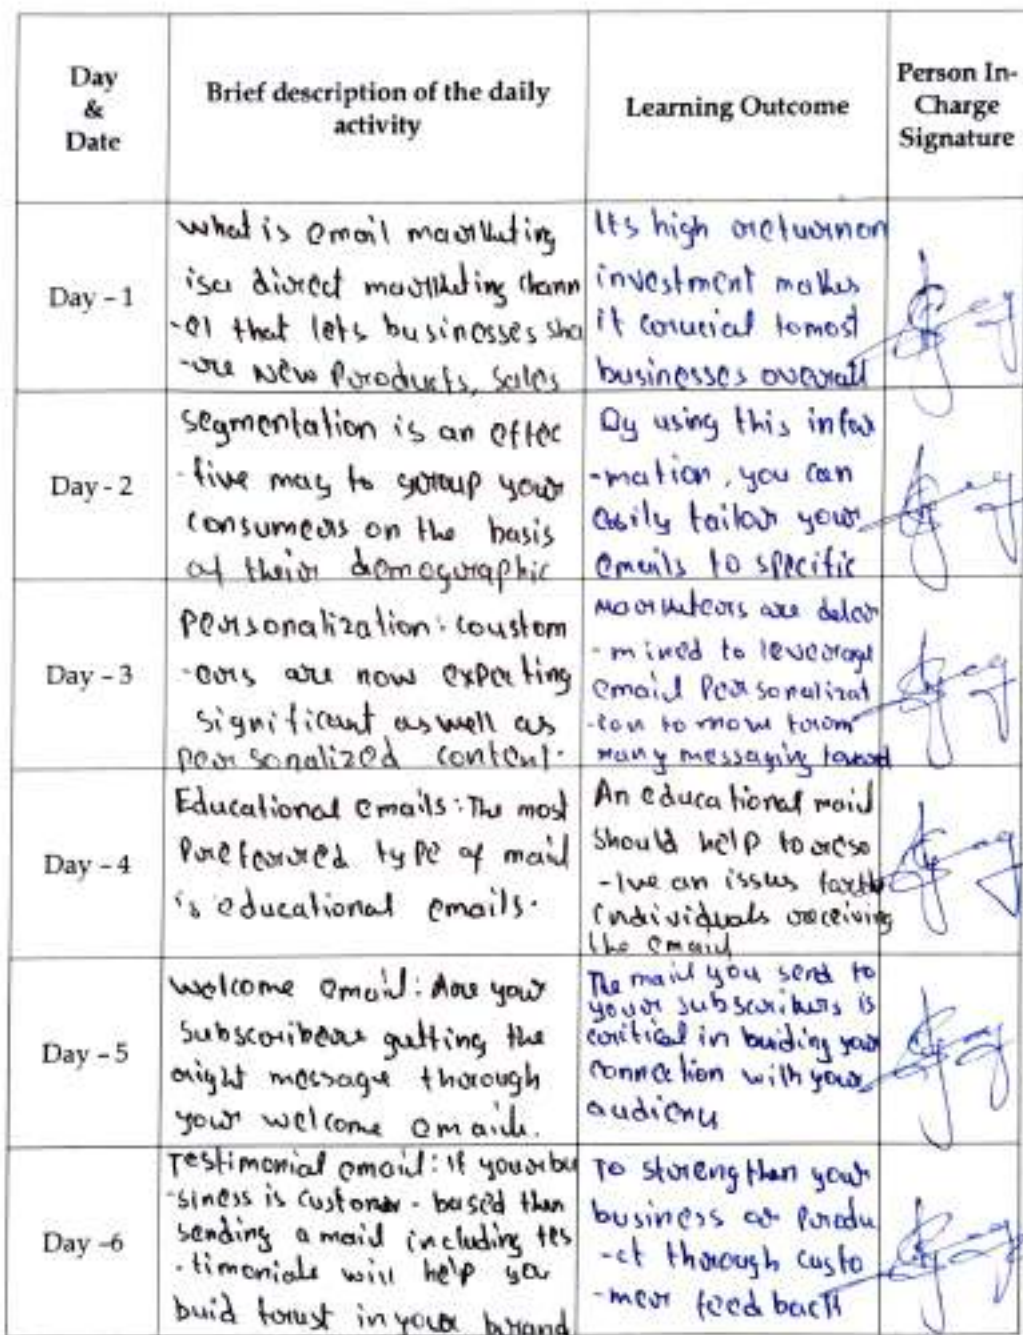 Day
&
Date
Brief description of the daily
activity
Learning Outcome
Person In-
Charge
Signature
Day - 1
what is email marketing
isa direct marketing chann
-el that lets businesses sha
-re New Products, sales
Its high returnon
investment makes
it corucial tomost
businesses overall
Day - 2
segmentation is an effec
-tive may to group your
consumers on the basis
of their demographic
By using this infor
-mation, you can
easily tailor your
emails to specific
Day - 3
personalization: coustom
-ers are now expecting
significant as well as
personalized content.
Marketers are deter
-mined to leverage
email Personalizat
-ion to move from
many messaging toward
Day - 4
Educational emails: The most
Preferred type of mail
is educational emails.
An educational mail
should help to reso
-lve an issus for the
individuals receiving
the email
Day - 5
welcome email: Are your
subscribers getting the
right message thorough
your welcome emails.
The mail you send to
your subscribers is
critical in buiding your
connection with your
audience
Day -6
Testimonial email: If your bu
-siness is customer - based then
sending a mail including tes
-timonials will help you
buid trust in your brand
To strengthen your
business or Produ
-ct thorough custo
-mer feed back